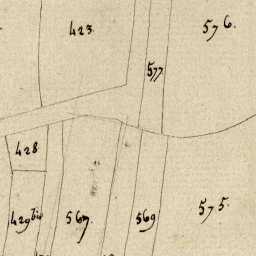 423.
576.
577
428
429 bis
567.
569
575.